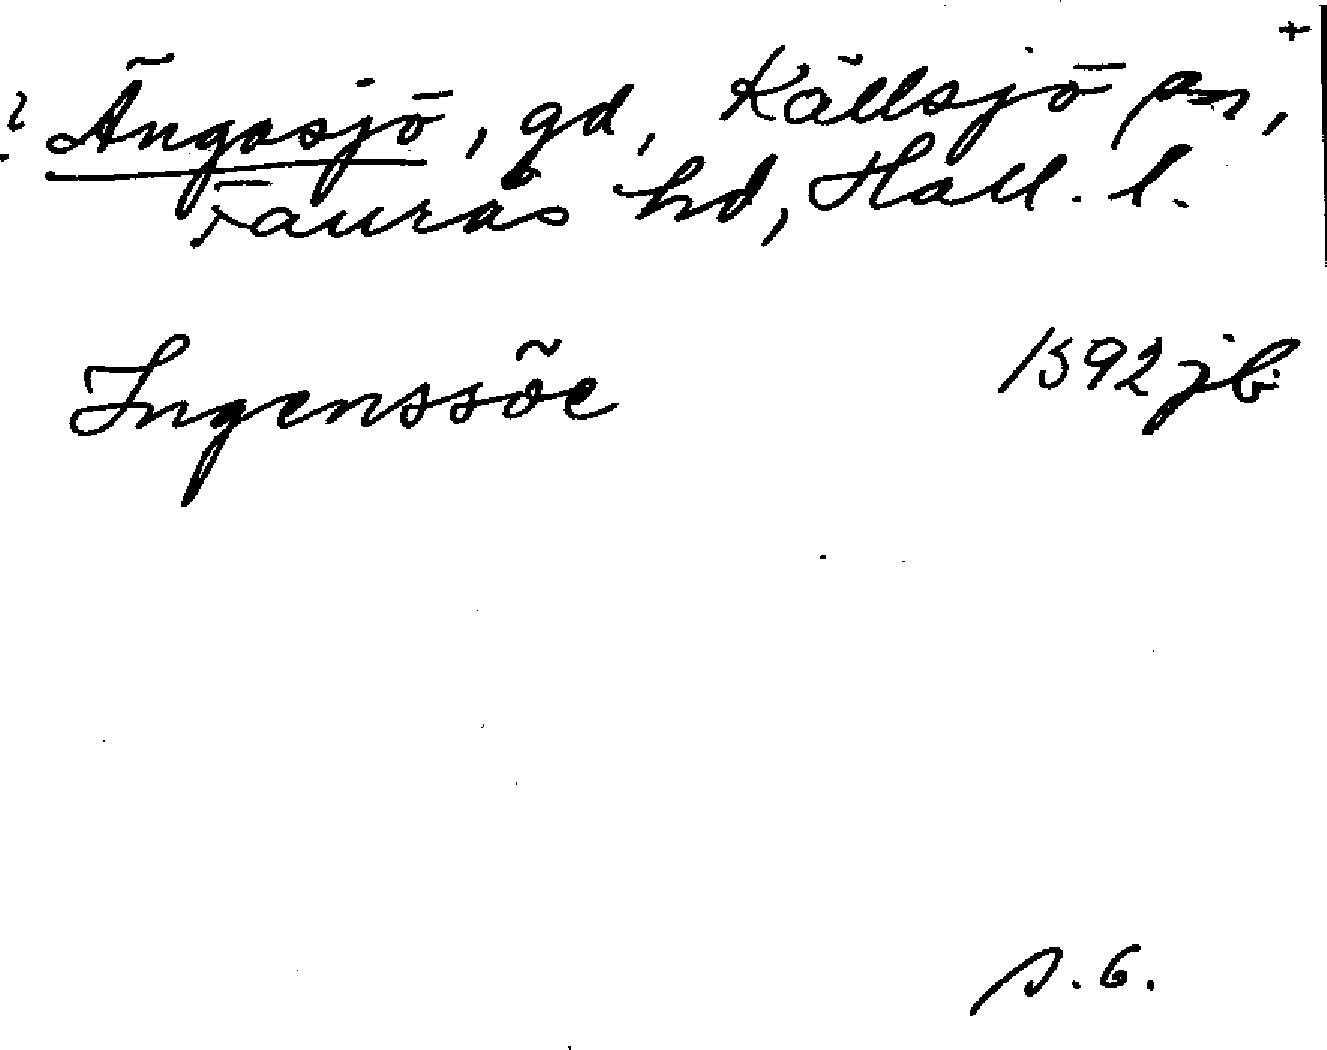 +
? Ängasjö, gd, Källsjö sn,
Faurås hd, Hall. l.
Ingenssöe 1592 jb:
s. 6.